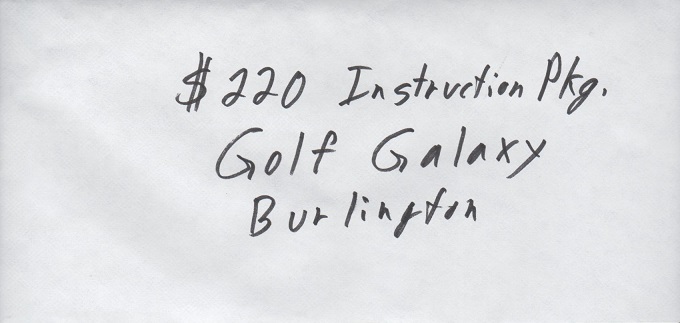 $220 Instruction Pkg.
Golf Galaxy
Burlington